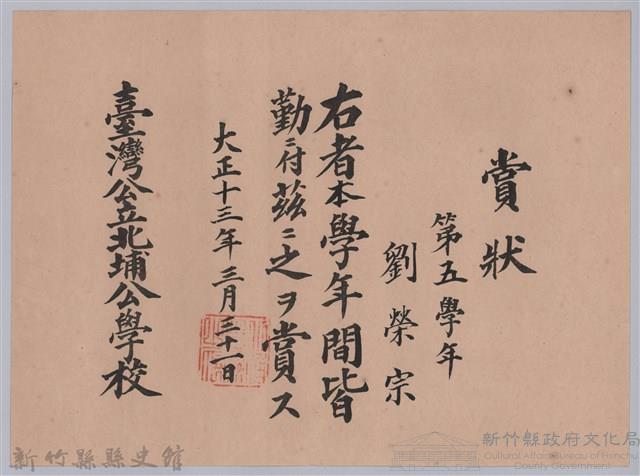 賞狀
第五學年
劉榮宗
右者本學年間皆
勤ニ付茲ニ之ヲ賞ス
大正十三年三月三十一日
臺灣公立北埔公學校
新竹縣縣史館
新竹縣政府文化局
Cultural Affairs Bureau of Hsinchu
County Government